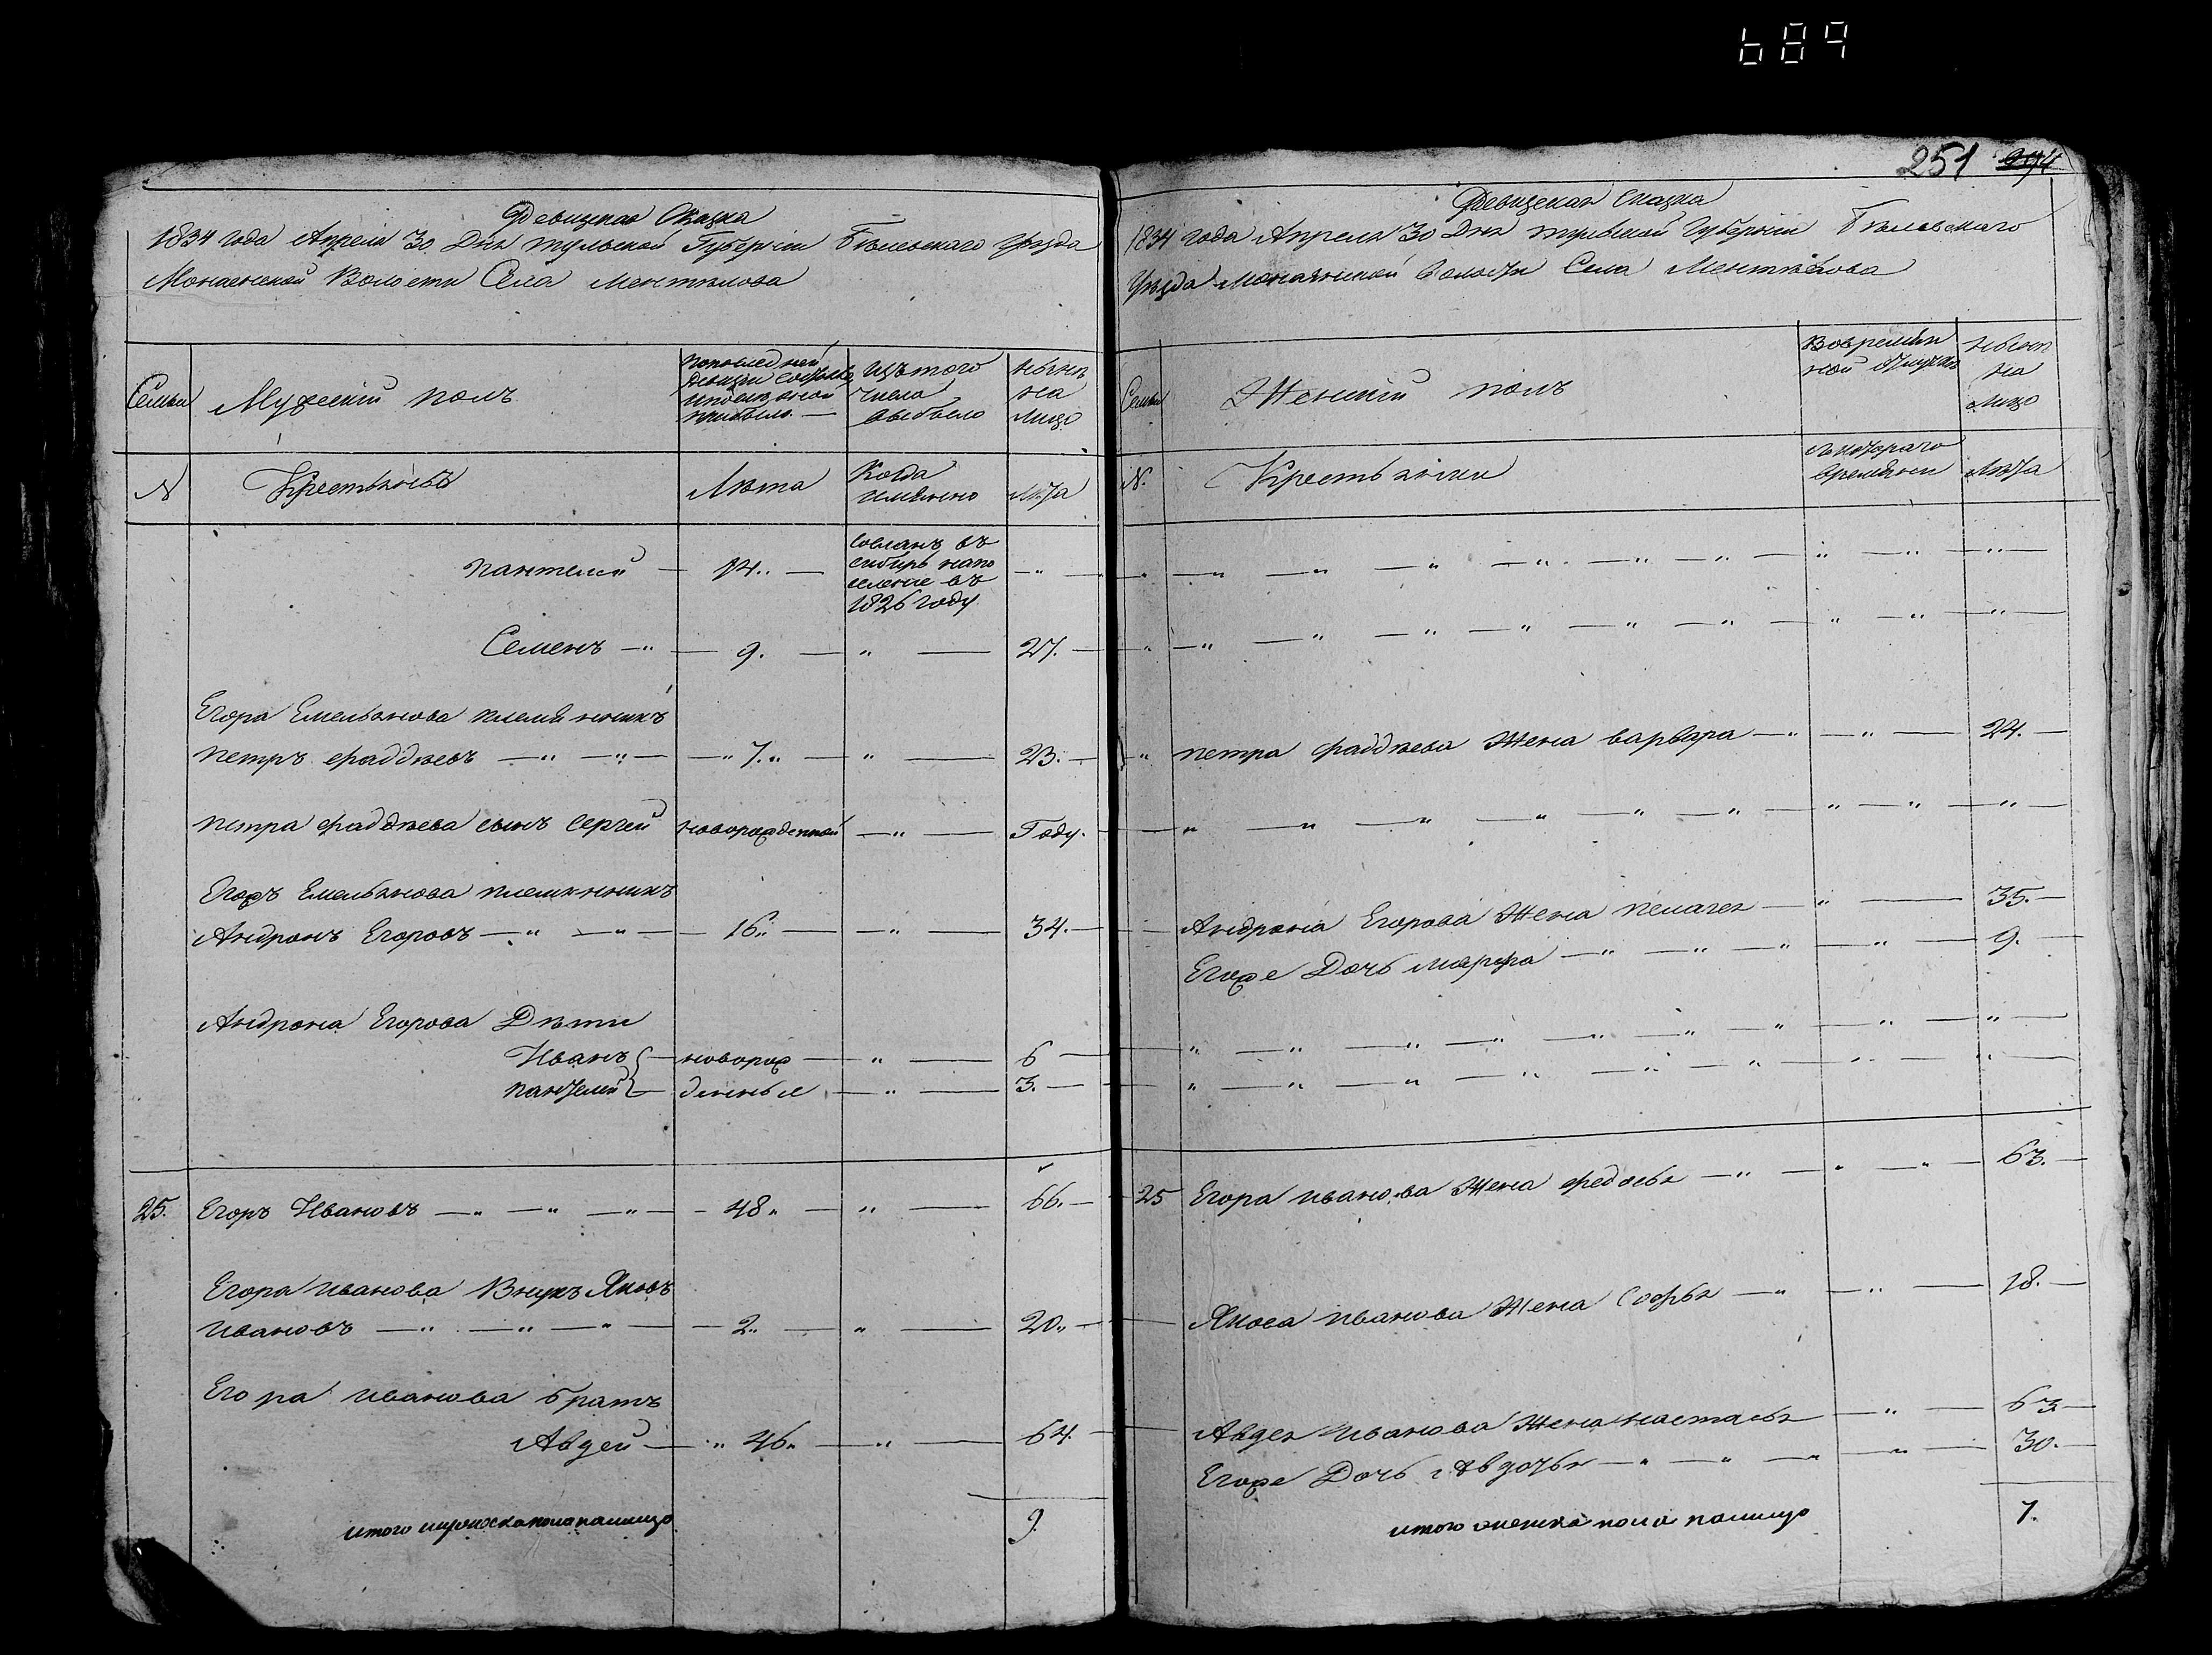 689
Ревизская Сказка
1834 года Апреля 30 Дня тульской Губернии Бѣлевскаго уѣзда
Монаенской Волости Села Ментелова
Семьи
Мужескій полъ
по последней ревизии состояло и после оной прибыло
Изъ того числа выбыло
нынѣ на лицо
N
Крестьянъ
Лѣта
Когда имянно
Лѣта
пантелей — 14 — сосланъ въ сибирь на поселение въ 1826 году — "
Семенъ — 9. — " — 27.
Егора Емельянова племянникъ
петръ фаддѣевъ — 7. — " — 23.
петра фаддѣева сынъ сергей новорожденной — " — Году.
Егоръ Емельянова племянникъ
Андронъ Егоровъ — 16 — " — 34.
Андрона Егорова Дѣти
Иванъ — новорож — " — 6
пантелей — денные — " — 3.
25. Егоръ Ивановъ — 48 — " — 66.
Егора иванова Внукъ Яковъ
ивановъ — 2 — " — 20
Егора иванова братъ
Авдей — 46 — " — 64.
итого мужеска пола налицо 9.
251 294
Ревизская Сказка
1834 года Апреля 30 Дня тульской Губернии Бѣлевскаго
Уѣзда монаенской волости Села Ментелова
Семьи
Женский полъ
Во времян ной отлучке
нынѣ на лицо
N.
Крестьянки
съ котораго времяни
Лѣта
петра фаддѣева Жена варвара — " — 24.
Андрона Егорова Жена пелагея — " — 35.
Егоже Дочь марфа — " — 9.
25 Егора иванова Жена федосья — " — 63.
Якова иванова Жена Софья — " — 18.
Авдея Иванова Жена настасья — " — 63
Егоже Дочь Авдотья — " — 30.
итого женска пола налицо 7.